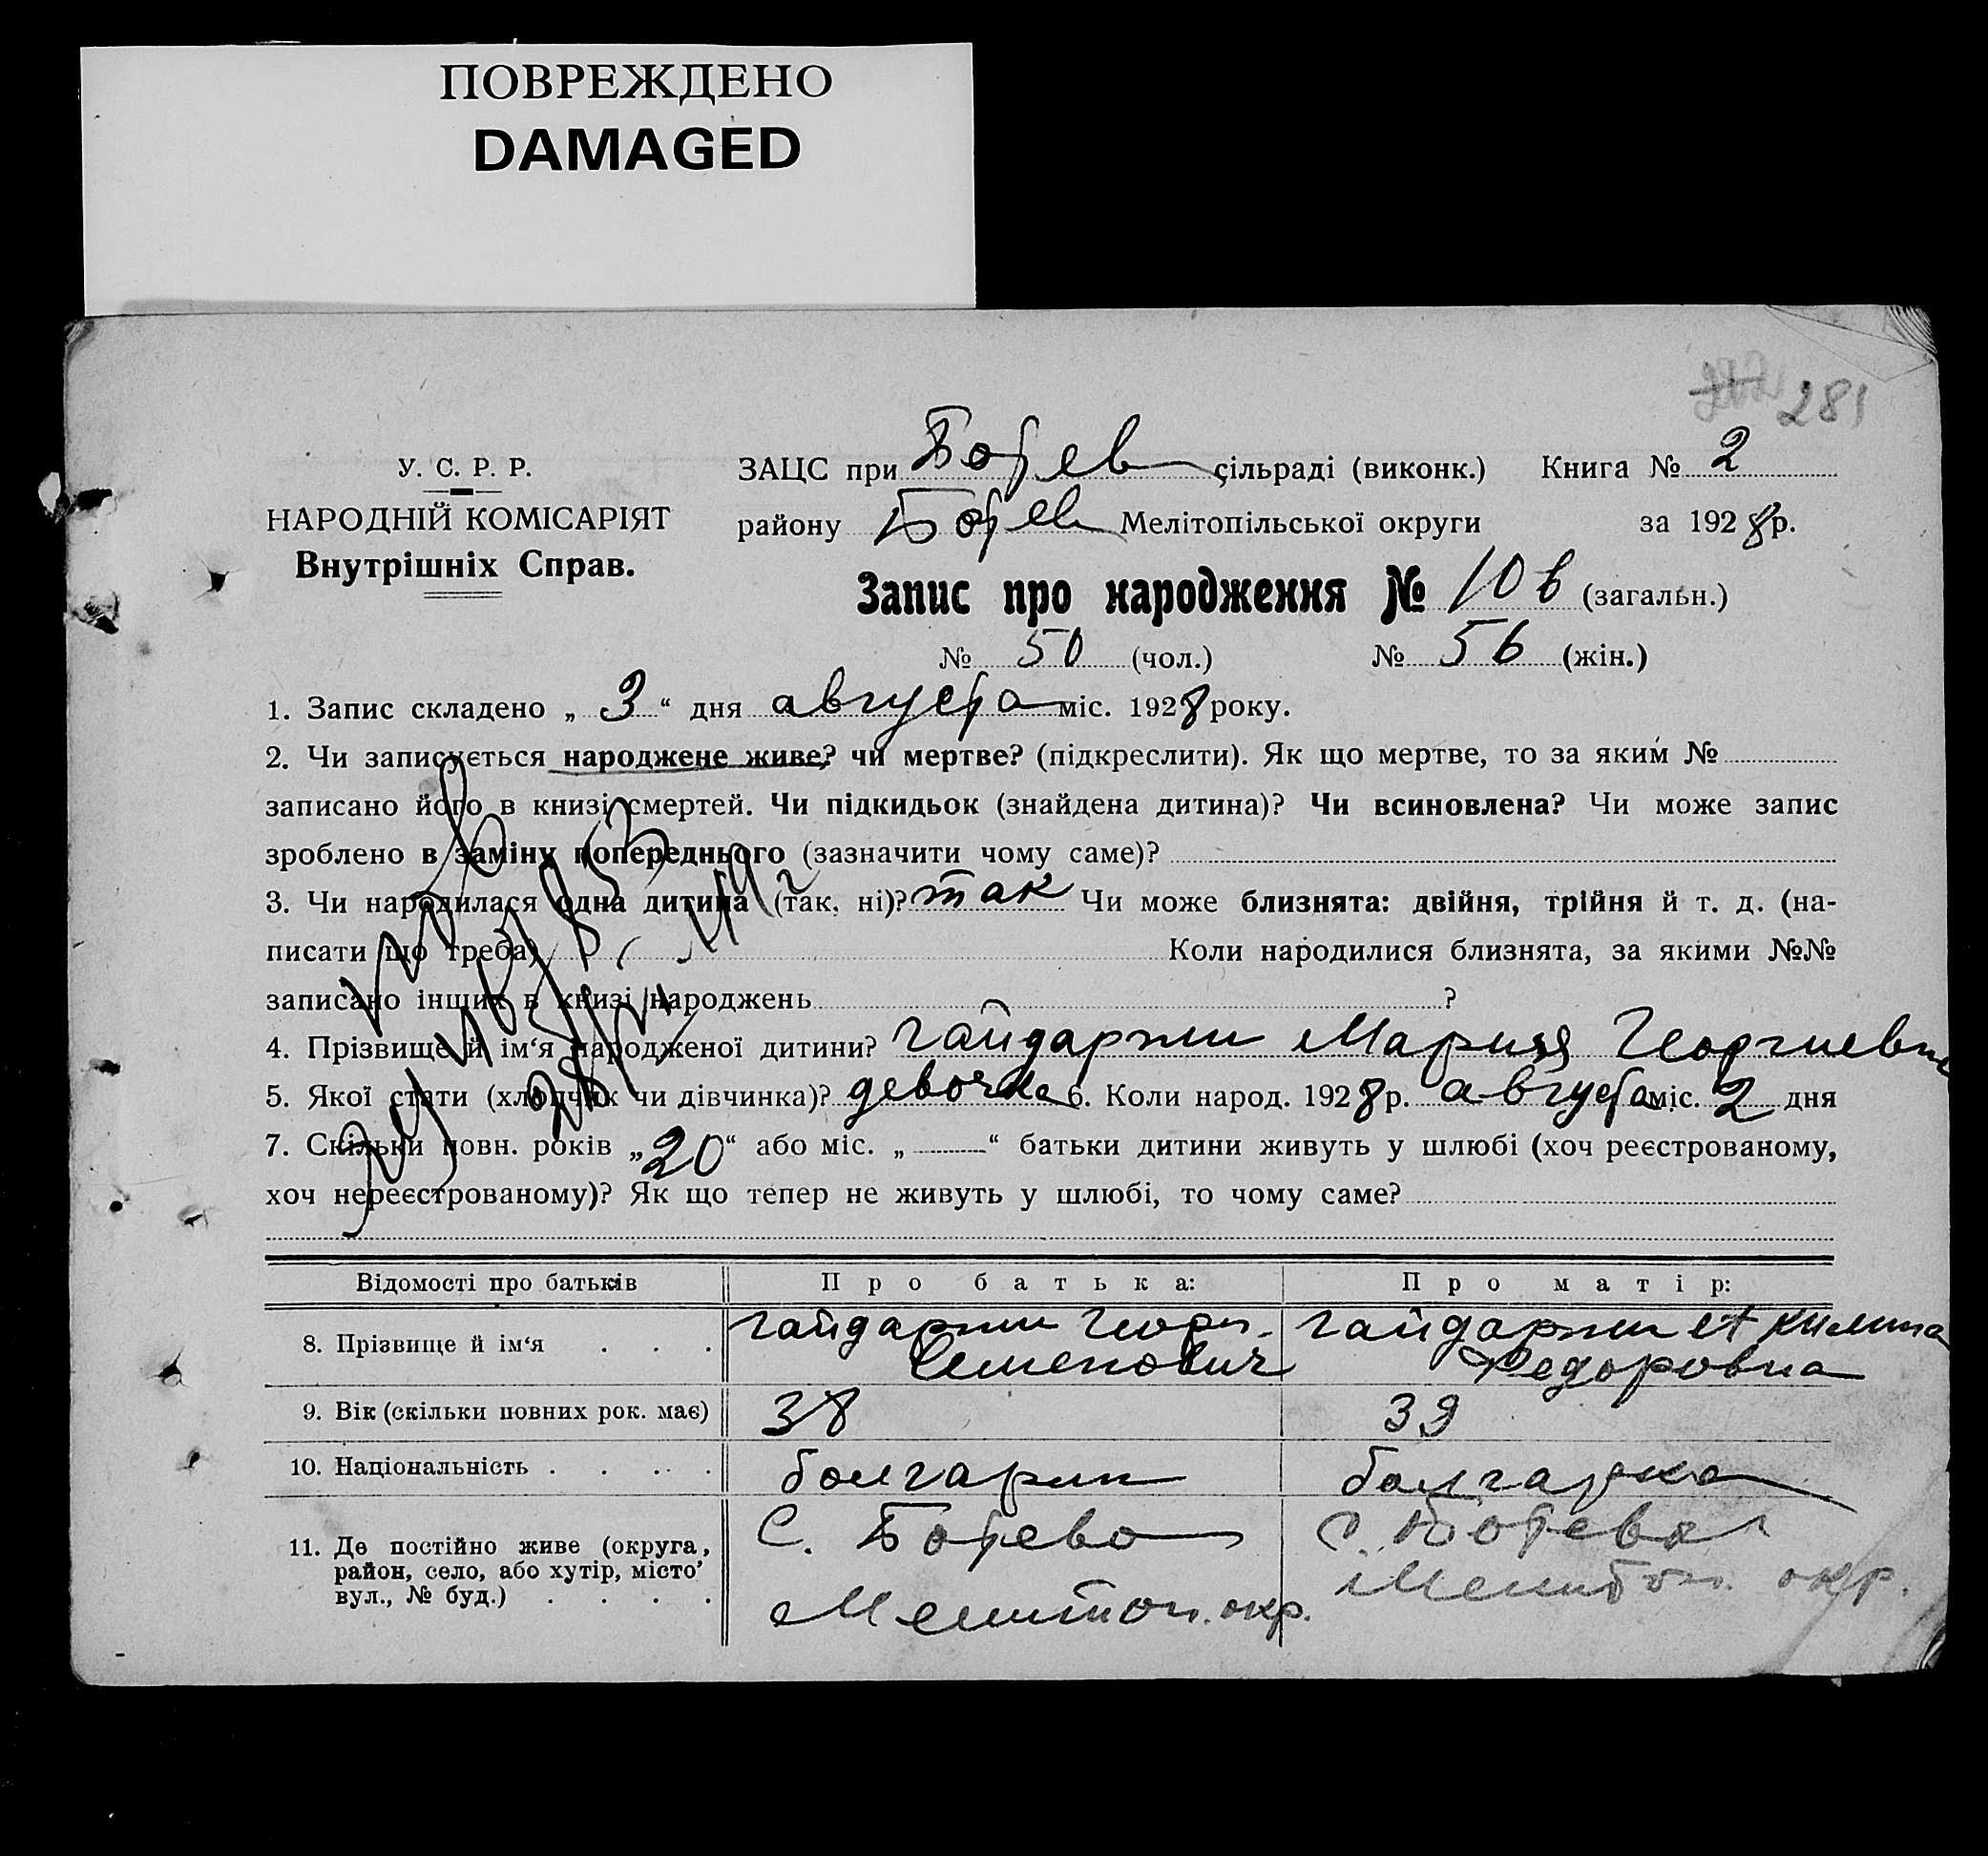 ПОВРЕЖДЕНО
DAMAGED
281
У. С. Р. Р.
НАРОДНІЙ КОМІСАРІЯТ
Внутрішніх Справ.
ЗАЦС при Ботев сільраді (виконк.) Книга № 2
району Ботев Мелітопільської округи за 1928 р.
Запис про народження № 106 (загальн.)
№ 50 (чол.) № 56 (жін.)
1. Запис складено „ 3 “ дня августа міс. 1928 року.
2. Чи записується народжене живе? чи мертве? (підкреслити). Як що мертве, то за яким №
записано його в книзі смертей. Чи підкидьок (знайдена дитина)? Чи всиновлена? Чи може запис
зроблено в заміну попереднього (зазначити чому саме)?
3. Чи народилася одна дитина (так, ні)? так Чи може близнята: двійня, трійня й т. д. (на-
писати що треба) Коли народилися близнята, за якими №№
записано інших в книзі народжень ?
4. Прізвище й ім‘я народженої дитини? Гайдаржи Мария Георгиевна
5. Якої стати (хлопчик чи дівчинка)? девочка 6. Коли народ. 1928 р. августа міс. 2 дня
7. Скільки повн. років „ 20 “ або міс. „ — “ батьки дитини живуть у шлюбі (хоч реєстрованому,
хоч нереєстрованому)? Як що тепер не живуть у шлюбі, то чому саме?
Відомості про батьків Про батька: Про матір:
8. Прізвище й ім‘я . . . Гайдаржи Георг. Гайдаржи Акилина
Семенович Федоровна
9. Вік (скільки повних рок. має) 38 39
10. Національність . . . . . болгарин болгарка
11. Де постійно живе (округа, С. Ботево С. Ботево
район, село, або хутір, місто’
вул., № буд.) . . . . Мелитоп. окр. Мелитоп. окр.